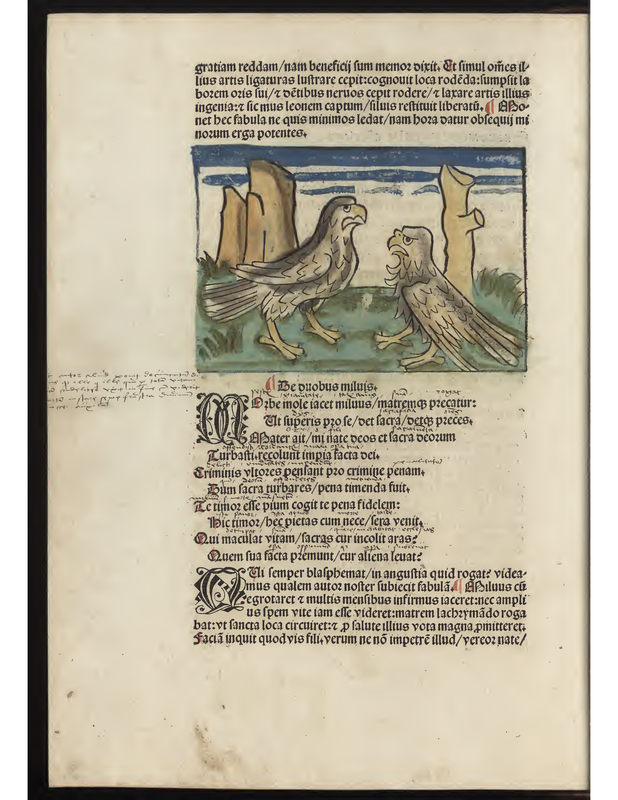 gratiam reddam/nam beneficij sum memor dixit. Et simul om̃es il-
lius artis ligaturas lustrare cepit:cognouit loca rodẽda:sumpsit la
borem oris sui/⁊ dẽtibus neruos cepit rodere/⁊ laxare artis illius
ingenia:⁊ sic mus leonem captum/siluis restituit liberatũ. ¶ Mo-
net hec fabula ne quis minimos ledat/nam hora datur obsequij mi
norum erga potentes.
¶ De duobus miluis.
MOrbe mole iacet miluus/matremq̃ precatur:
Ut superis pro se/det sacra/detq̃ preces.
Mater ait/mi nate deos et sacra deorum
Turbasti.recolunt impia facta dei.
Criminis vltores pensant pro crimine penam.
Dum sacra turbares/pena timenda fuit.
Te timor esse pium cogit te pena fidelem:
Hic timor/hec pietas cum nece/sera venit.
Qui maculat vitam/sacras cur incolit aras?
Quem sua facta premunt/cur aliena leuat?
QUi semper blasphemat/in angustia quid rogat? videa-
mus qualem autor noster subiecit fabulã. ¶ Miluus cũ
egrotaret ⁊ multis mensibus infirmus iaceret:nec ampli
us spem vite iam esse videret:matrem lachrymãdo roga
bat:vt sancta loca circuiret:⁊ ꝓ salute illius vota magna ꝓmitteret.
Faciã inquit quod vis fili.verum ne nõ impetrẽ illud/vereor nate/